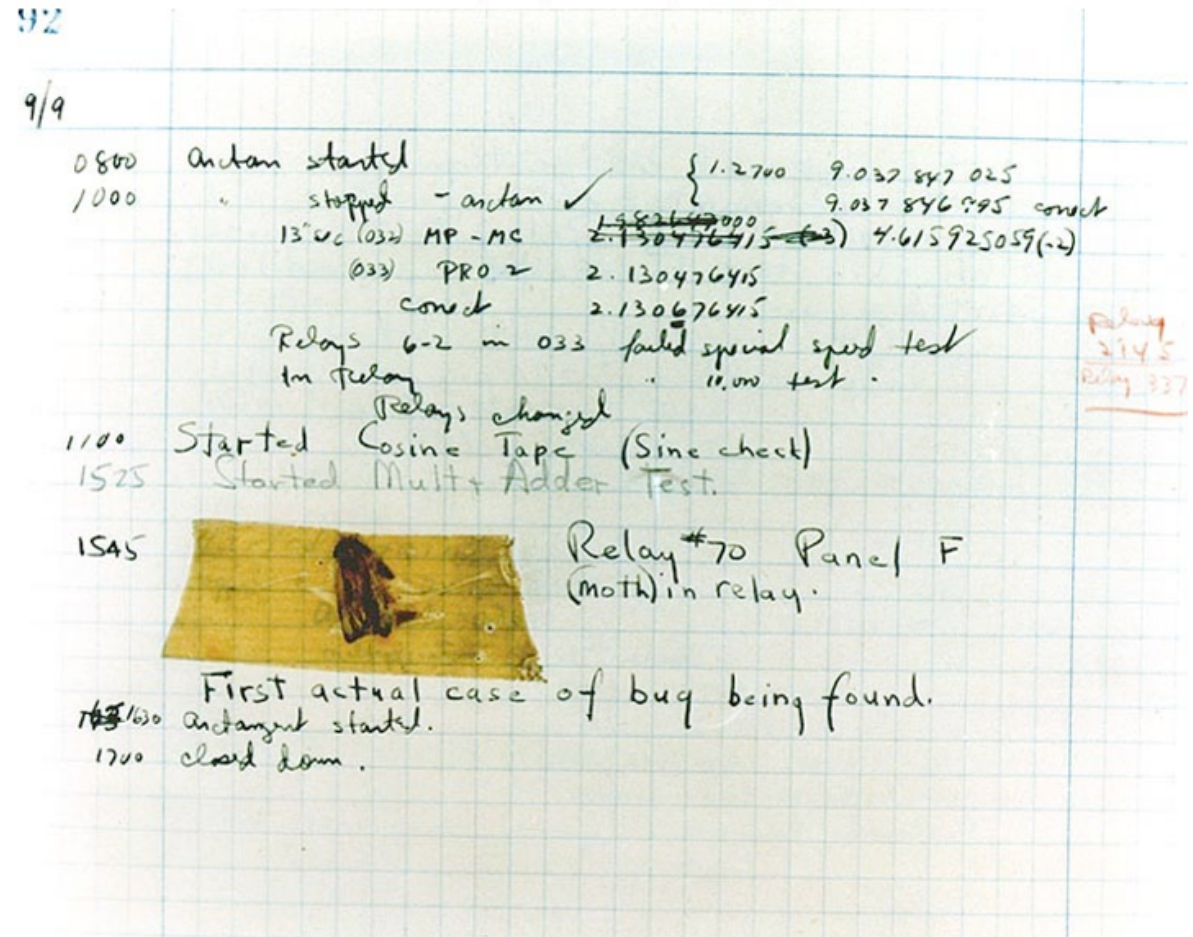 92
9/9
0800 arctan started { 1.2700 9.037 847 025
1000 " stopped - arctan ✓ 9.037 846 995 correct
13"uc (032) MP - MC 1.982647000 2.130476415 (-3) 4.615925059(-2)
(033) PRO 2 2.130476415
correct 2.130676415
Relays 6-2 in 033 failed special speed test
In Relay " 10.000 test.
Relay 2145
Relay 337
Relays changed
1100 Started Cosine Tape (Sine check)
1525 Started Mult+Adder Test.
1545 Relay #70 Panel F
(moth) in relay.
First actual case of bug being found.
1630 arctangent started.
1700 closed down.